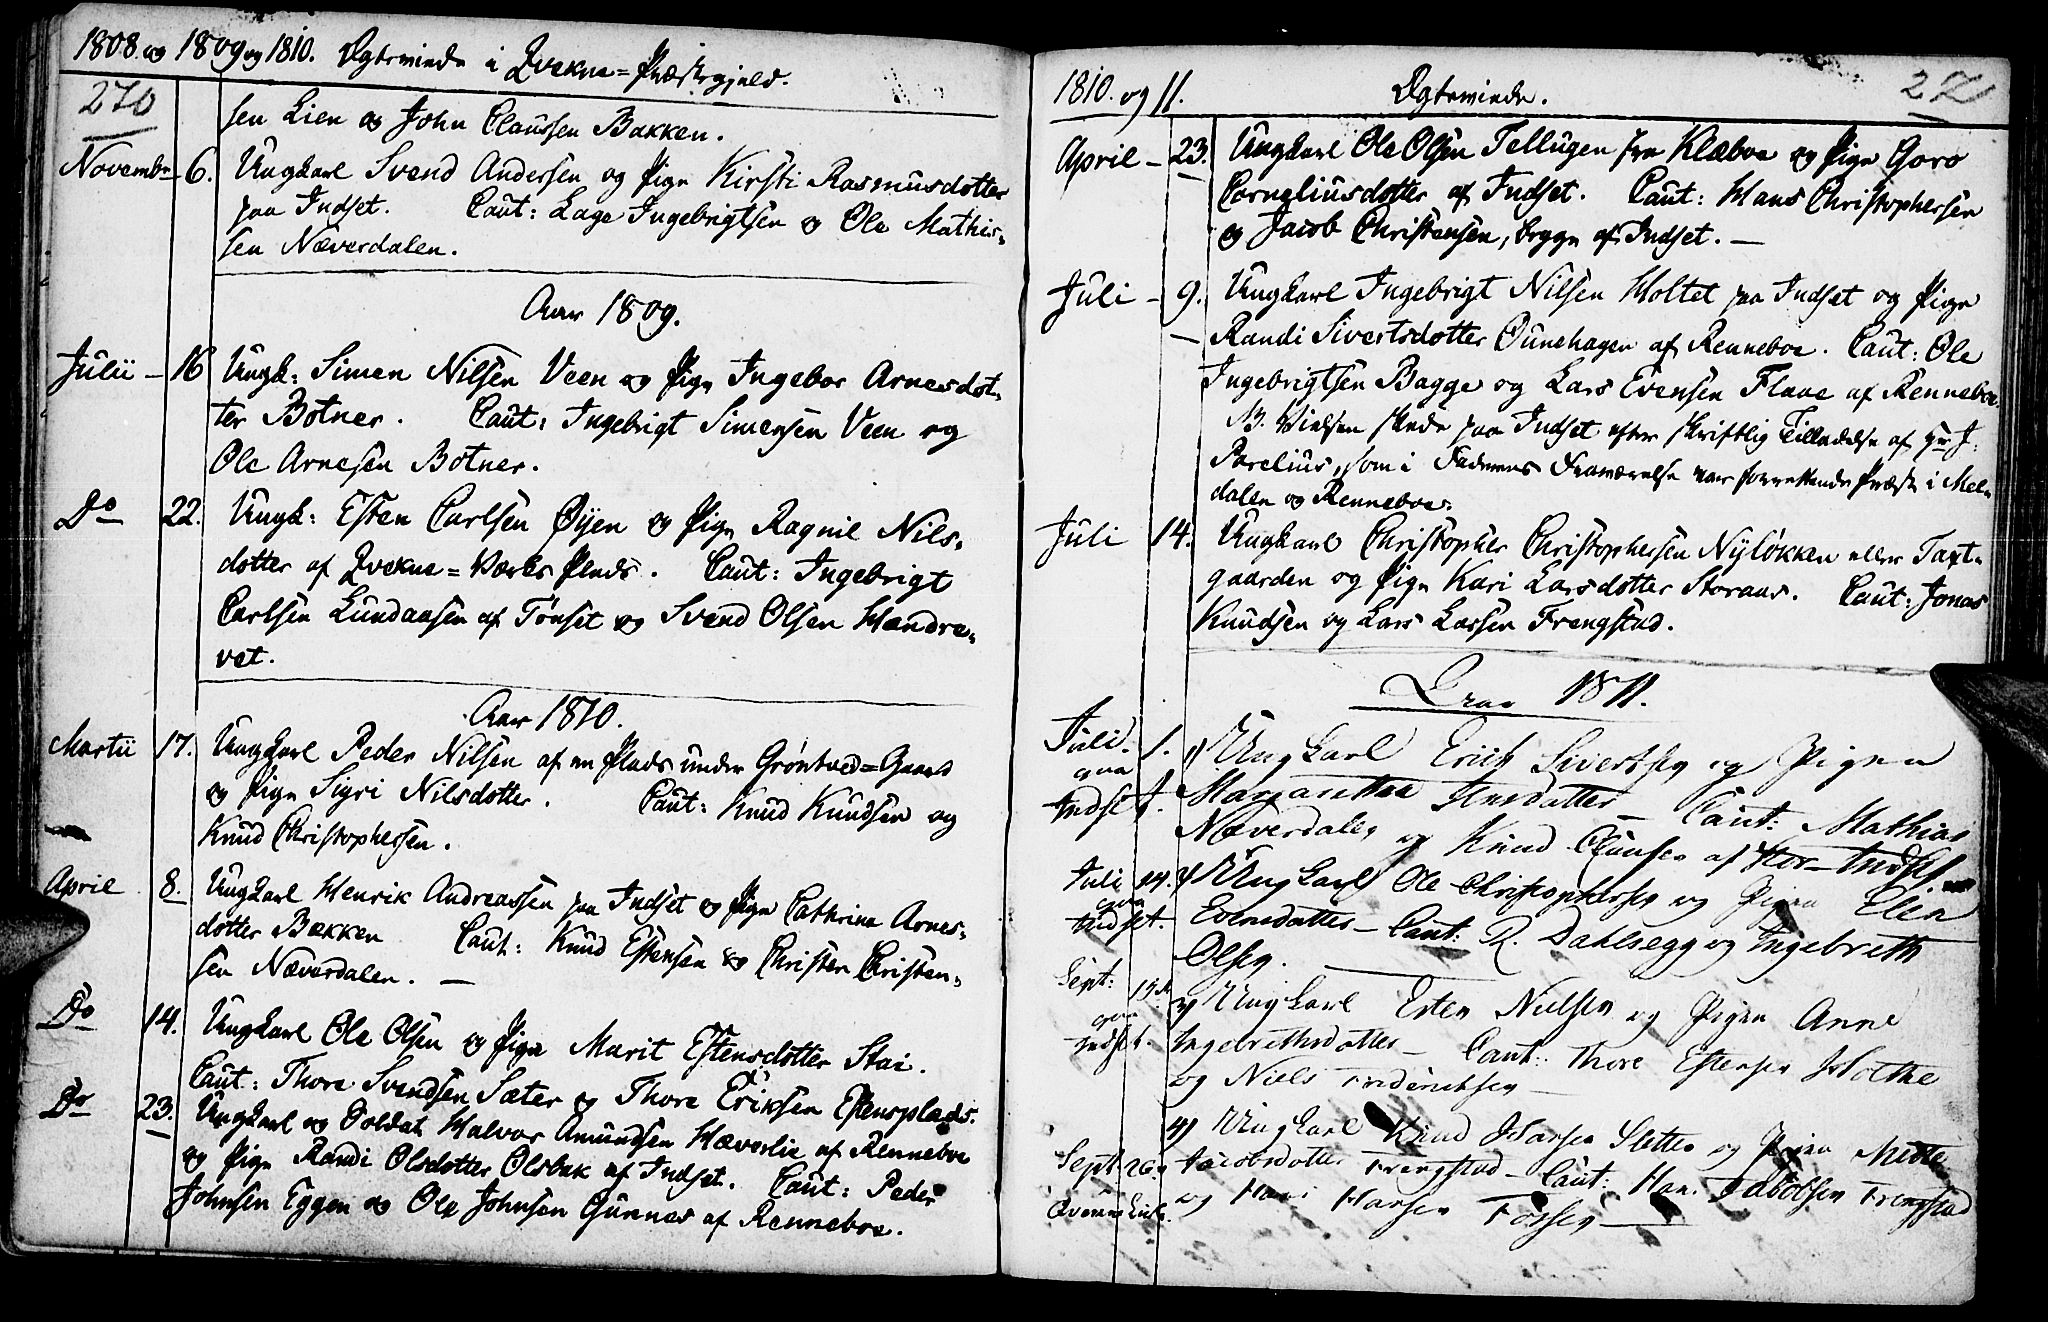 1808 og 1809 og 1810. Ægteviede i Qvekne=Præstegjeld.
270
sen Lien og John Claussen Bakken.
Novembr 6. Ungkarl Svend Andersen og Pige Kirsti Rasmusdotter
paa Indset. Caut: Lage Ingebrigtsen og Ole Mathis-
sen Næverdalen.
Aar 1809.
Julii - 16 Ungk: Simen Nilsen Veen og Pige Ingebor Arnesdot-
ter Botner. Caut: Ingebrigt Simensen Veen og
Ole Arnesen Botner.
Do 22. Ungk: Esten Carlsen Øyen og Pige Ragnil Nils-
dotter af Qvekne=Værks Plads. Caut: Ingebrigt
Carlsen Lundaasen af Tønset og Svend Olsen Hændre-
vet.
Aar 1810.
Martii 17. Ungkarl Peder Nilsen af en Plads under Grøntved=Gaard
og Pige Sigri Nilsdotter. Caut: Knud Knudsen og
Knud Christophersen.
April 8. Ungkarl Henrik Andreassen paa Indset og Pige Cathrina Arnes-
dotter Bækken Caut: Knud Estensen og Christen Christen-
sen Næverdalen. —
Do 14. Ungkarl Ole Olsen og Pige Marit Estensdotter Stai.
Caut: Thore Svendsen Sæter og Thore Eriksen Estensplads.
Do 23. Ungkarl og Soldat Halvor Amundsen Hæverlie af Renneboe
og Pige Randi Olsdotter Olsbak af Indset. Caut: Peder
Johnsen Eggen og Ole Johnsen Gunnes af Renneboe.
1810. og 11. Ægteviede. 271
April - 23. Ungkarl Ole Olsen Tellugen fra Klæboe og Pige Goro
Corneliusdotter af Indset. Caut: Hans Christophersen
og Jacob Christensen, begge af Indset. —
Juli - 9. Ungkarl Ingebrigt Nilsen Holtet paa Indset og Pige
Randi Sivertsdotter Dunehagen af Renneboe. Caut: Ole
Ingebrigtsen Bagge og Lars Evensen Flaae af Renneboe.
B. Vielsen skede paa Indset efter skriftlig Tilladelse af Hr J:
Parelius, som i Faderens Fraværelse var forrettende Præst i Mel-
dalen og Renneboe.
Juli 14. Ungkarl Christopher Christophersen Nyløkken eller Taxt-
gaarden og Pige Kari Larsdotter Storaas. Caut: Jonas
Knudsen og Lars Larsen Frengstad.
Aar 1811.
Juli. 1. 1) Ungkarl Erich Sivertsen og Pigen
paa
Indset. Margaretha Arnsdatter — Caut: Mathias
Næverdalen og Knud Clausen af Stor-Indset.
Juli 14. 2) Ungkarl Ole Christophersen og Pigen Elen
paa
Indset. Evensdatter — Caut: R. Dahlsegg og Ingebreth
Olsen. —
Sept: 3) Ungkarl Esten Nielsen og Pigen Anne
paa
Indset. Ingebrethsdatter — Caut: Thore Estensen Hothe
og Niels Friderichsen —
4) Ungkarl Knud Larsen Sletten og Pigen Mette
Sept 26. Jacobsdatter Frengstad — Caut: Han. Jacobsen Frengstad
Qvekne Kirke. og Hans Hansen Fossen —